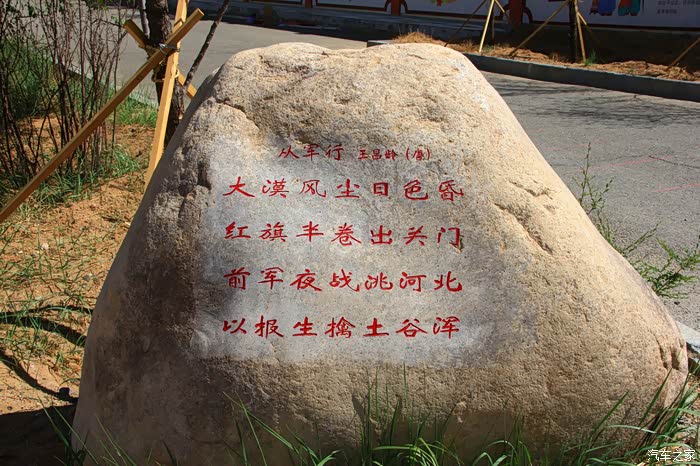 从军行 王昌龄（唐）
大漠风尘日色昏
红旗半卷出头门
前军夜战洮河北
以报生擒土谷浑
汽车之家